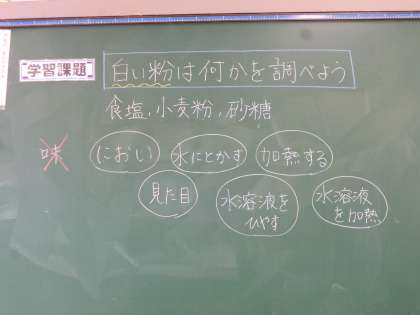 学習課題 白い粉は何かを調べよう
食塩,小麦粉,砂糖
味 におい 水にとかす 加熱する
見た目 水溶液をひやす 水溶液を加熱